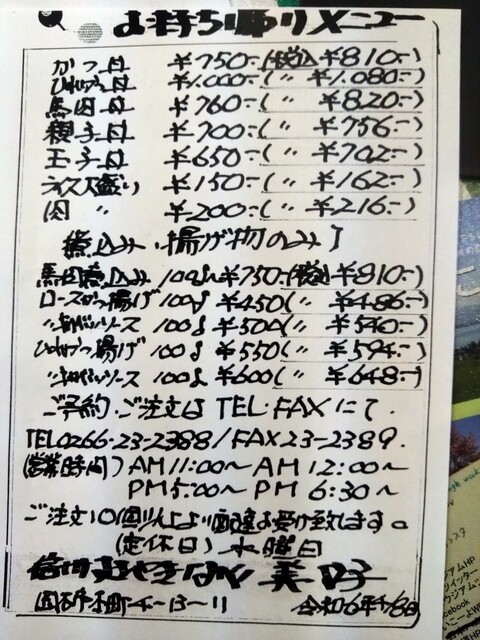 お持ち帰りメニュー
かつ丼 ¥750-(税込 ¥810-)
ひれかつ丼 ¥1,000-( 〃 ¥1,080-)
馬肉丼 ¥760-( 〃 ¥820-)
親子丼 ¥700-( 〃 ¥756-)
玉子丼 ¥650-( 〃 ¥702-)
ライス大盛り ¥150-( 〃 ¥162-)
肉 〃 ¥200-( 〃 ¥216-)
煮込み・揚げ物のみ
馬肉煮込み 100g ¥750-(税込 ¥810-)
ロースかつ揚げ 100g ¥450( 〃 ¥486-)
100g ¥500( 〃 ¥540-)
ひれかつ揚げ 100g ¥550( 〃 ¥594-)
100g ¥600( 〃 ¥648-)
ご予約・ご注文は TEL・FAXにて
TEL0266-23-2388/FAX23-2389.
(営業時間) AM11:00〜AM12:00〜
PM5:00〜PM6:30〜
ご注文10個以上より配達お受け致します。
(定休日) 水曜日
令和6年